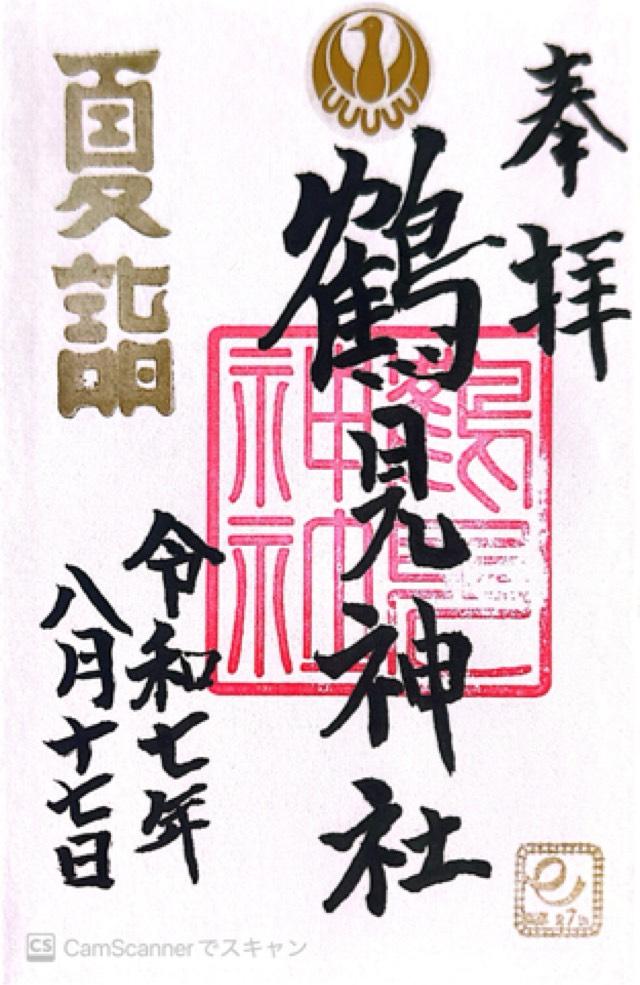 奉拝
鶴見神社
夏詣
令和七年
八月十七日
鶴見
神社
CS CamScannerでスキャン